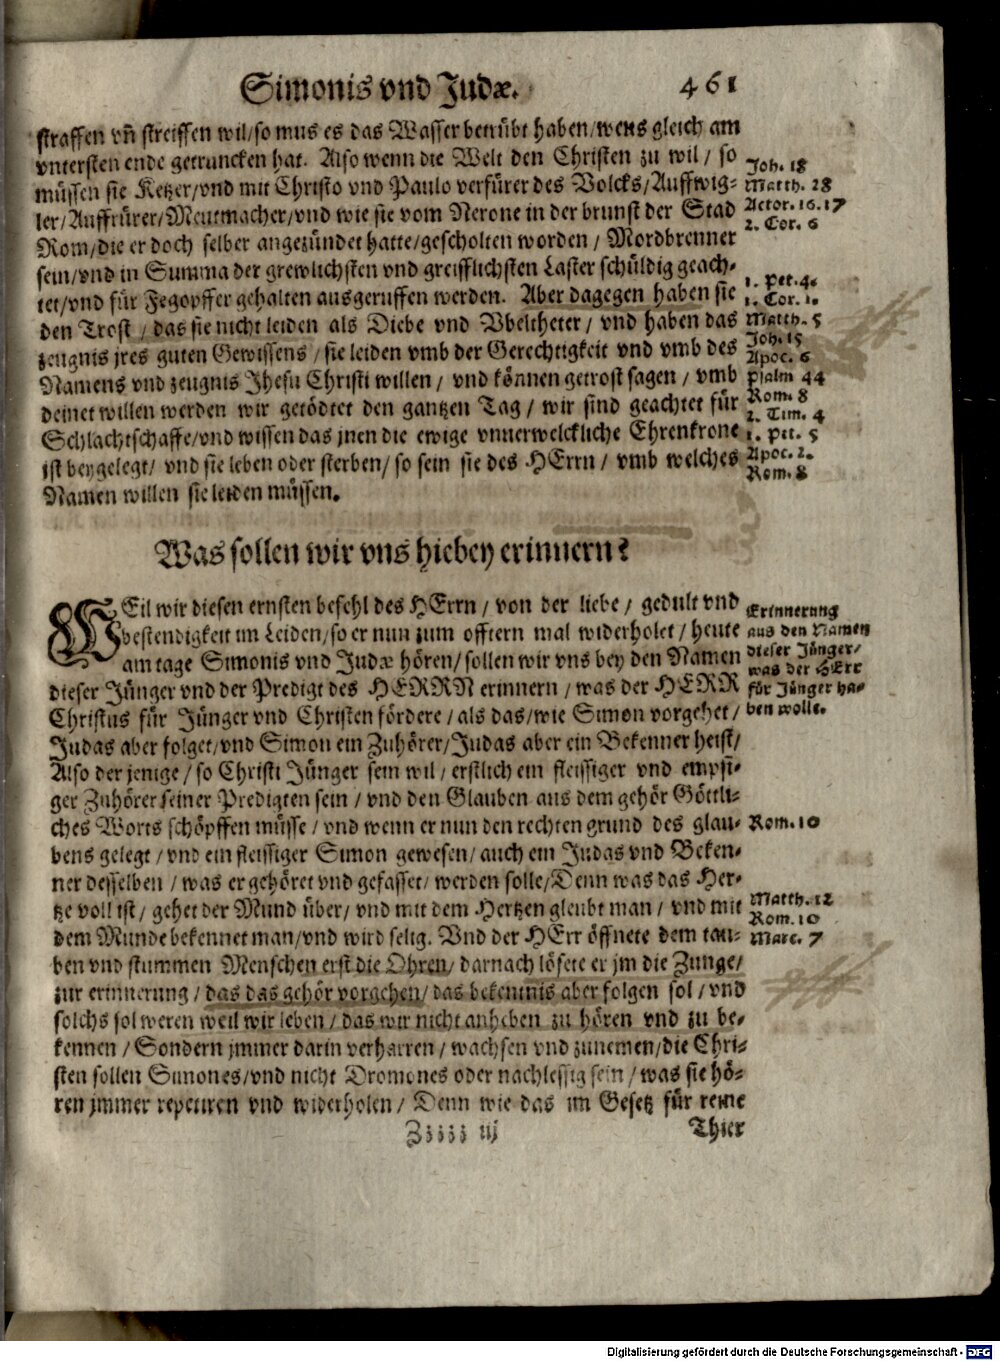 Simonis vnd Judæ. 461
straffen vñ streiffen wil/so mus es das Wasser betrübt haben/wens gleich am
vntersten ende getruncken hat. Also wenn die Welt den Christen zu wil/ so
müssen sie Ketzer/vnd mit Christo vnd Paulo verfürer des Volcks/Auffwig-
ler/Auffrürer/Meutmacher/vnd wie sie vom Nerone in der brunst der Stad
Rom/die er doch selber angezündet hatte/gescholten worden/ Mordbrenner
sein/vnd in Summa der grewlichsten vnd greifflichsten Laster schüldig geach-
tet/vnd für Fegopffer gehalten ausgeruffen werden. Aber dagegen haben sie
den Trost / das sie nicht leiden als Diebe vnd Vbeltheter/ vnd haben das
zeugnis jres guten Gewissens / sie leiden vmb der Gerechtigkeit vnd vmb des
Namens vnd zeugnis Jhesu Christi willen/ vnd können getrost sagen/ vmb
deinet willen werden wir getödtet den gantzen Tag / wir sind geachtet für
Schlachtschaffe/vnd wissen das jnen die ewige vnuerwelckliche Ehrenkrone
ist beygelegt/ vnd sie leben oder sterben/ so sein sie des HErrn / vmb welches
Namen willen sie leiden müssen.
Joh. 18
Matth. 28
Actor. 16. 17
2. Cor. 6
1. Pet. 4.
1. Cor. 1.
Matth. 5
Joh. 15
Apoc. 6
Psalm 44
Rom. 8
2. Tim. 4
1. Pet. 5
Apoc. 2.
Rom. 8
Was sollen wir vns hiebey erinnern?
WEil wir diesen ernsten befehl des HErrn / von der liebe/ gedult vnd
bestendigkeit im Leiden/so er nun zum offtern mal widerholet/ heute
am tage Simonis vnd Judæ hören/ sollen wir vns bey den Namen
dieser Jünger vnd der Predigt des HERRN erinnern / was der HERR
Christus für Jünger vnd Christen fördere / als das/wie Simon vorgehet/
Judas aber folget/vnd Simon ein Zuhörer/Judas aber ein Bekenner heist/
Also der jenige / so Christi Jünger sein wil/ erstlich ein fleissiger vnd empsi-
ger Zuhörer seiner Predigten sein / vnd den Glauben aus dem gehör Göttli-
ches Worts schöpffen müsse / vnd wenn er nun den rechten grund des glau-
bens gelegt / vnd ein fleissiger Simon gewesen/ auch ein Judas vnd Beken-
ner desselben / was er gehöret vnd gefasset/ werden solle/Denn was das Her-
tze voll ist/ gehet der Mund über/ vnd mit dem Hertzen gleubt man / vnd mit
dem Munde bekennet man/vnd wird selig. Vnd der HErr öffnete dem tau-
ben vnd stummen Menschen erst die Ohren/ darnach lösete er jm die Zunge/
zur erinnerung / das das gehör vorgehen/ das bekentnis aber folgen sol / vnd
solchs sol weren weil wir leben / das wir nicht anheben zu hören vnd zu be-
kennen / Sondern jmmer darin verharren / wachsen vnd zunemen/die Chri-
sten sollen Simones/vnd nicht Dromones oder nachlessig sein / was sie hö-
ren jmmer repetiren vnd widerholen / Denn wie das im Gesetz für reine
Erinnerung
aus den Namen
dieser Jünger/
was der HErr
für Jünger ha-
ben wolle.
Rom. 10
Matth. 12
Rom. 10
Marc. 7
Zzzzz iij Thier
Digitalisierung gefördert durch die Deutsche Forschungsgemeinschaft - DFG